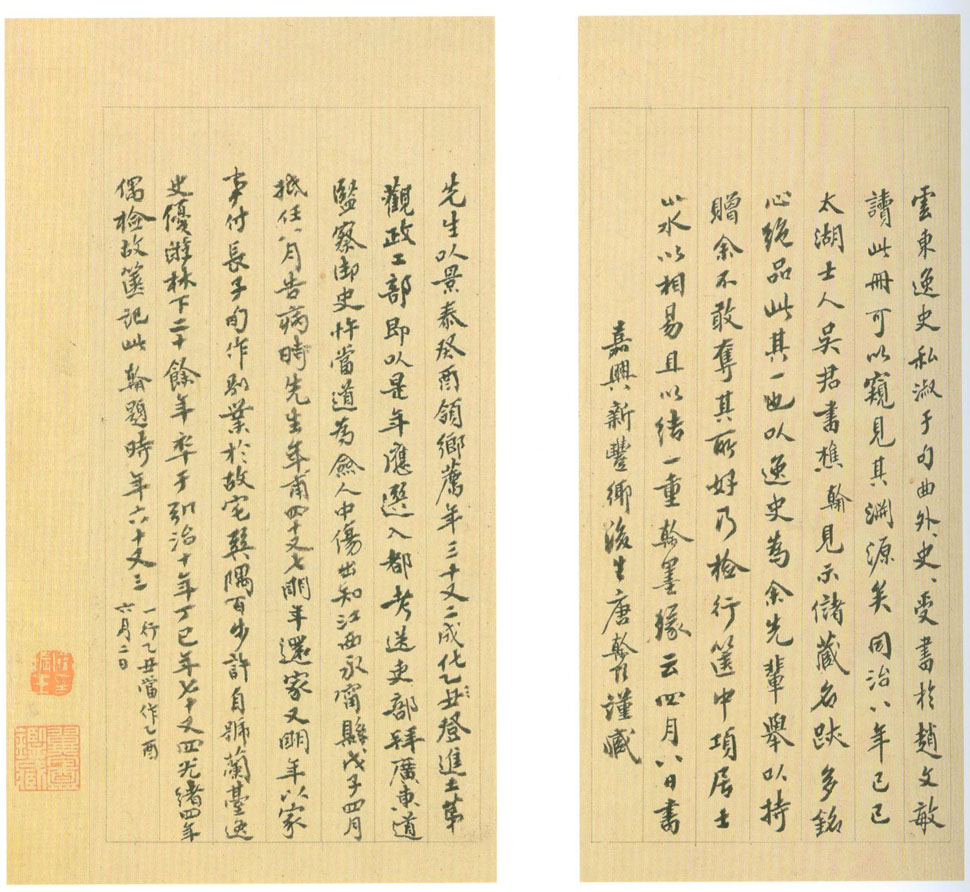 雲東逸史私淑于句曲外史、受書於趙文敏
讀此冊可以窺見其淵源矣同治八年己巳
太湖士人吳君書樵、翰見示儲藏名跡多銘
心絕品此其一也以逸史為余先輩舉以持
贈余不敢奪其所好乃檢行篋中項居士
山水以相易且以結一重翰墨緣云四月八日書
嘉興新豐鄉後生唐翰題謹藏
先生以景泰癸酉領鄉薦年三十又二成化乙丑登進士第
觀政工部即以是年應選入都考送吏部拜廣東道
監察御史忤當道為僉人中傷出知江西永甯縣戊子四月
抵任八月告病時先生年甫四十又七明年還家又明年以家
事付長子旬作別業於故宅巽隅百步許自號蘭臺逸
史優游林下二十餘年卒于弘治十年丁巳年七十又四光緒四年
偶檢故篋記此翰題時年六十又三
一行乙丑當作乙酉
六月二日